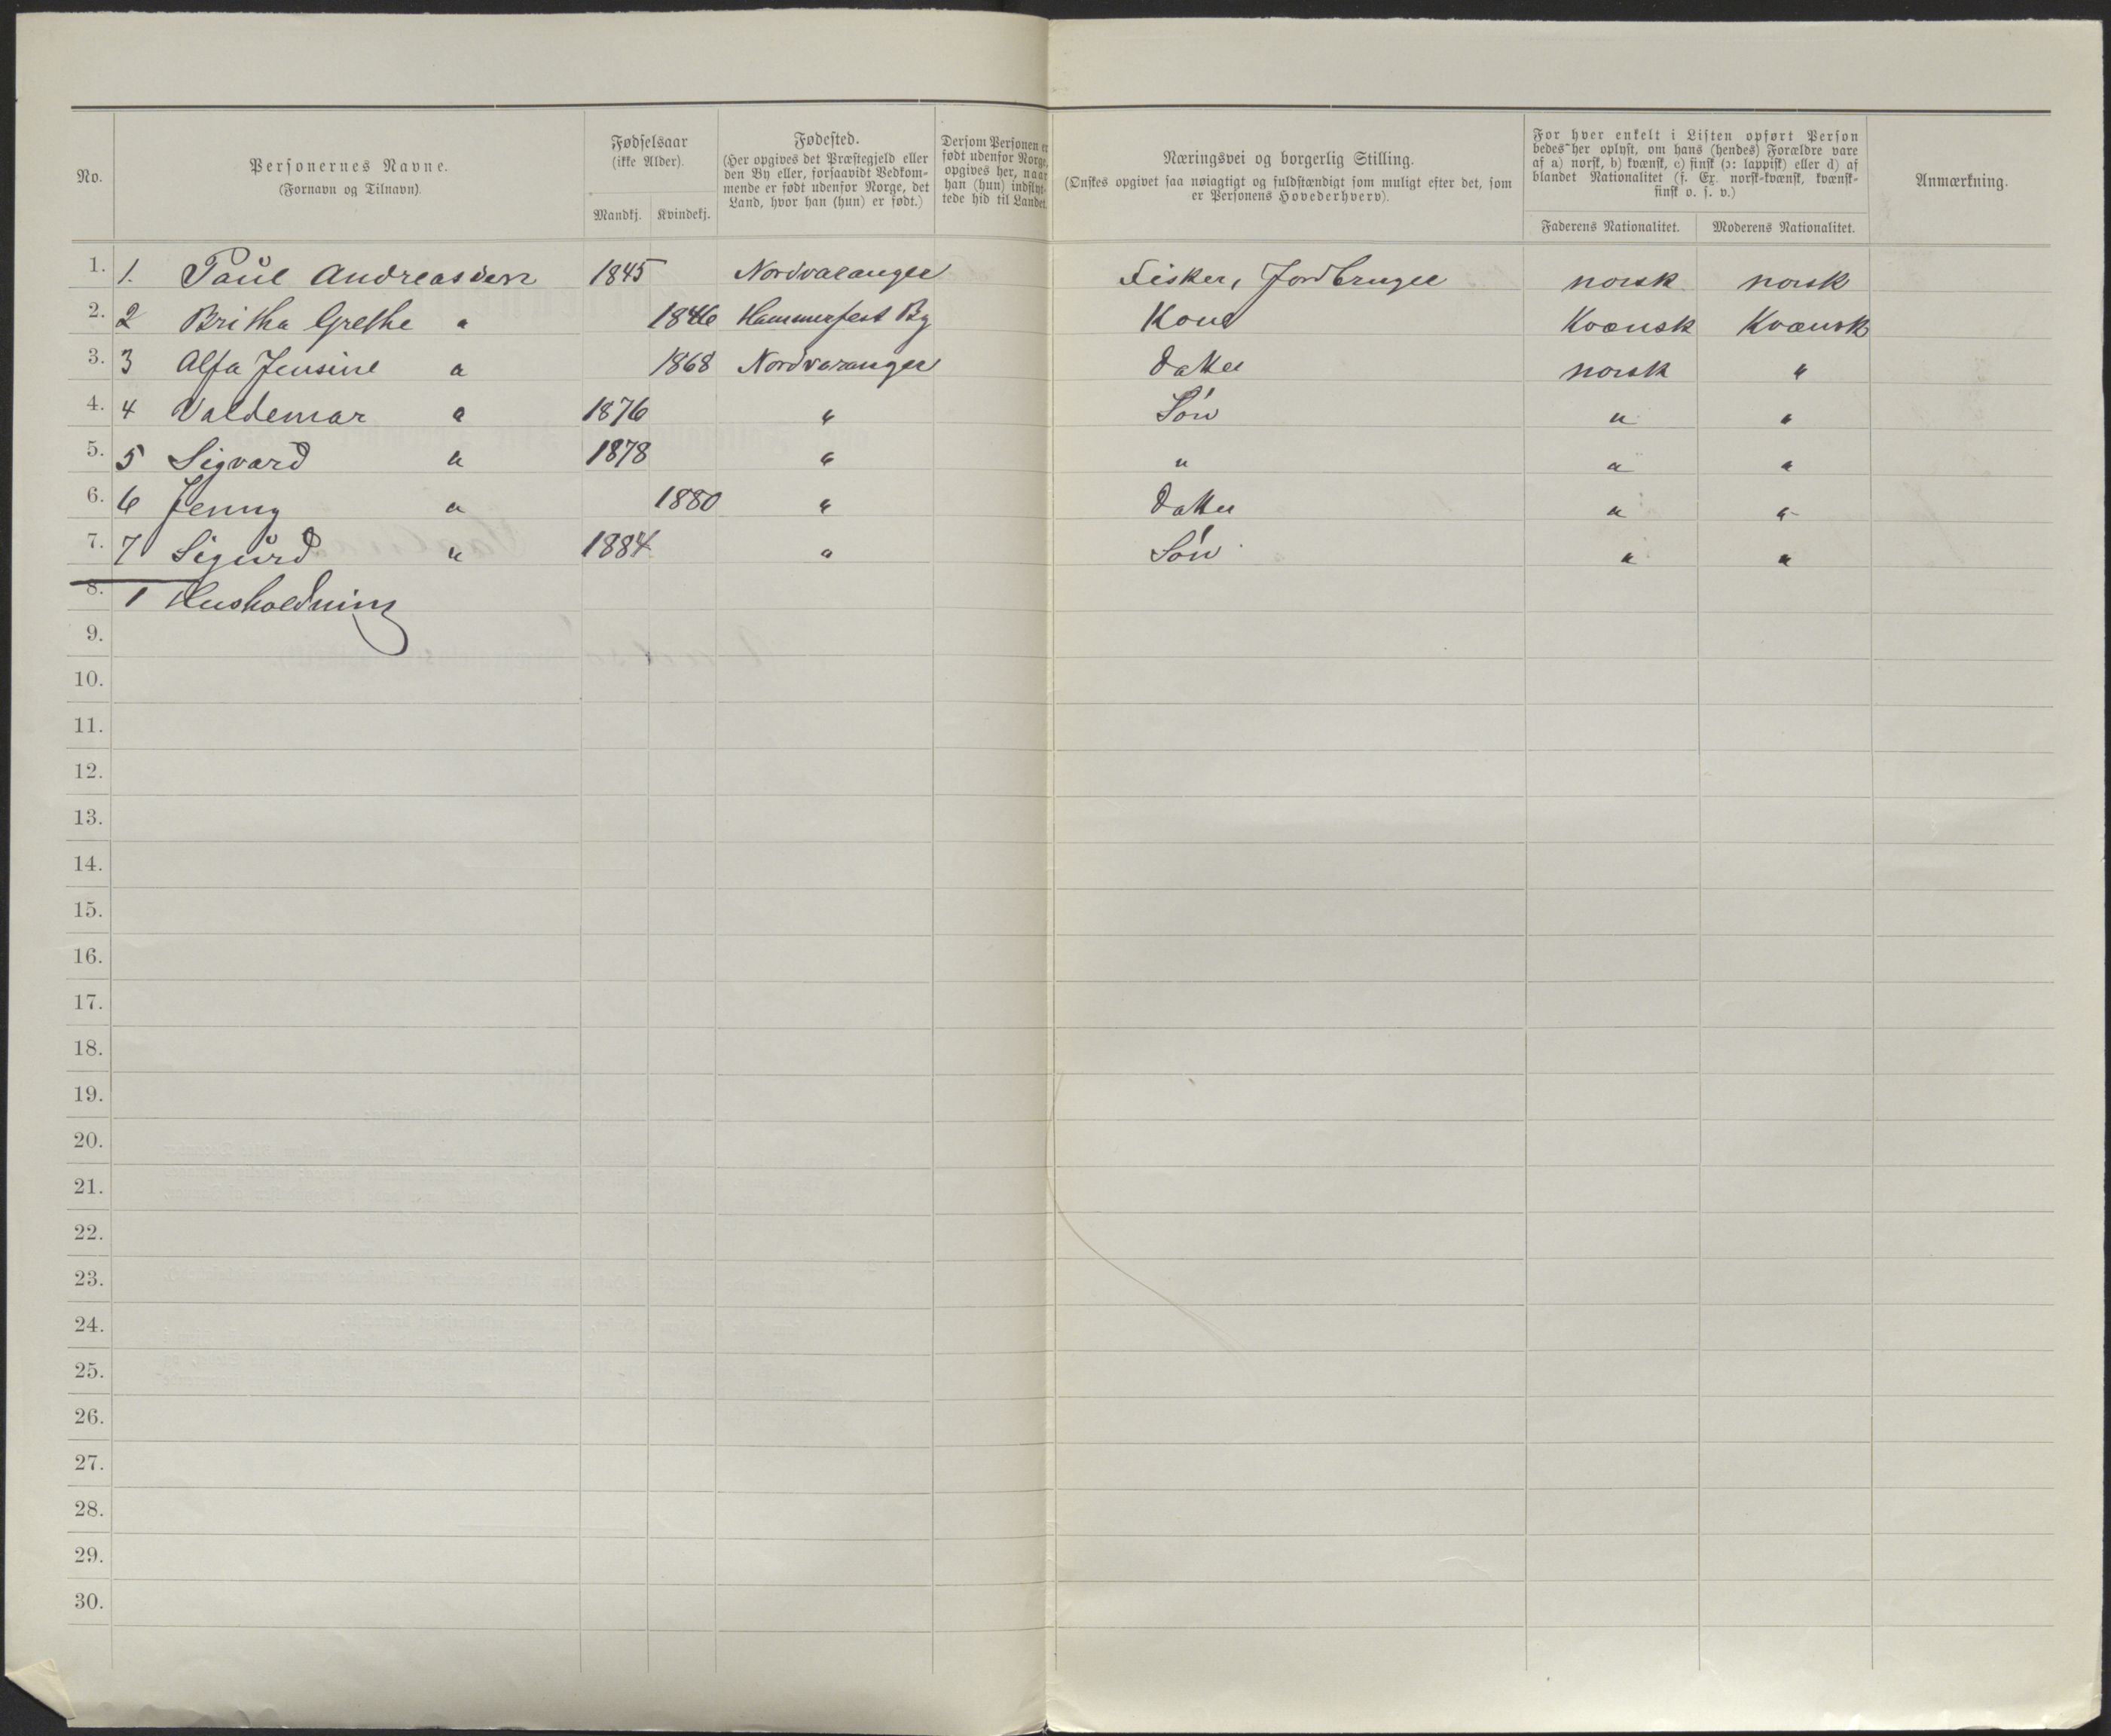 No.
Personernes Navne.
(Fornavn og Tilnavn).
Fødselsaar
(ikke Alder).
Mandkj. Kvindekj.
Fødested.
(Her opgives det Præstegjeld eller
den By eller, forsaavidt Vedkom-
mende er født udenfor Norge, det
Land, hvor han (hun) er født.)
Dersom Personen er
født udenfor Norge,
opgives her, naar
han (hun) indflyt-
tede hid til Landet.
Næringsvei og borgerlig Stilling.
(Ønskes opgivet saa nøiagtigt og fuldstændigt som muligt efter det, som
er Personens Hovederhverv).
For hver enkelt i Listen opført Person
bedes her oplyst, om hans (hendes) Forældre vare
af a) norsk, b) kvænsk, c) finsk (ɔ: lappisk) eller d) af
blandet Nationalitet (f. Ex. norsk-kvænsk, kvænsk-
finsk o. s. v.)
Faderens Nationalitet. Moderens Nationalitet.
Anmærkning.
1. 1. Paul Andreassen 1845 Nordvaranger Fisker, Jordbruger norsk norsk
2. 2 Britha Grethe " 1846 Hammerfest By Kone Kvænsk Kvænsk
3. 3 Alfa Jensine " 1868 Nordvaranger Datter norsk "
4. 4 Valdemar " 1876 " Søn " "
5. 5 Sigvard " 1878 " " " "
6. 6 Jenny " 1880 " Datter " "
7. 7 Sigurd " 1884 " Søn " "
8. 1 Husholdning
9.
10.
11.
12.
13.
14.
15.
16.
17.
18.
19.
20.
21.
22.
23.
24.
25.
26.
27.
28.
29.
30.